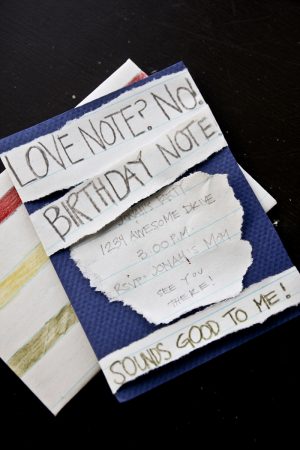 LOVE NOTE? NO!
BIRTHDAY NOTE.
1234 AWESOME DRIVE
3:00 P.M.
RSVP: JONAH'S MOM
SEE YOU
THERE!
SOUNDS GOOD TO ME!